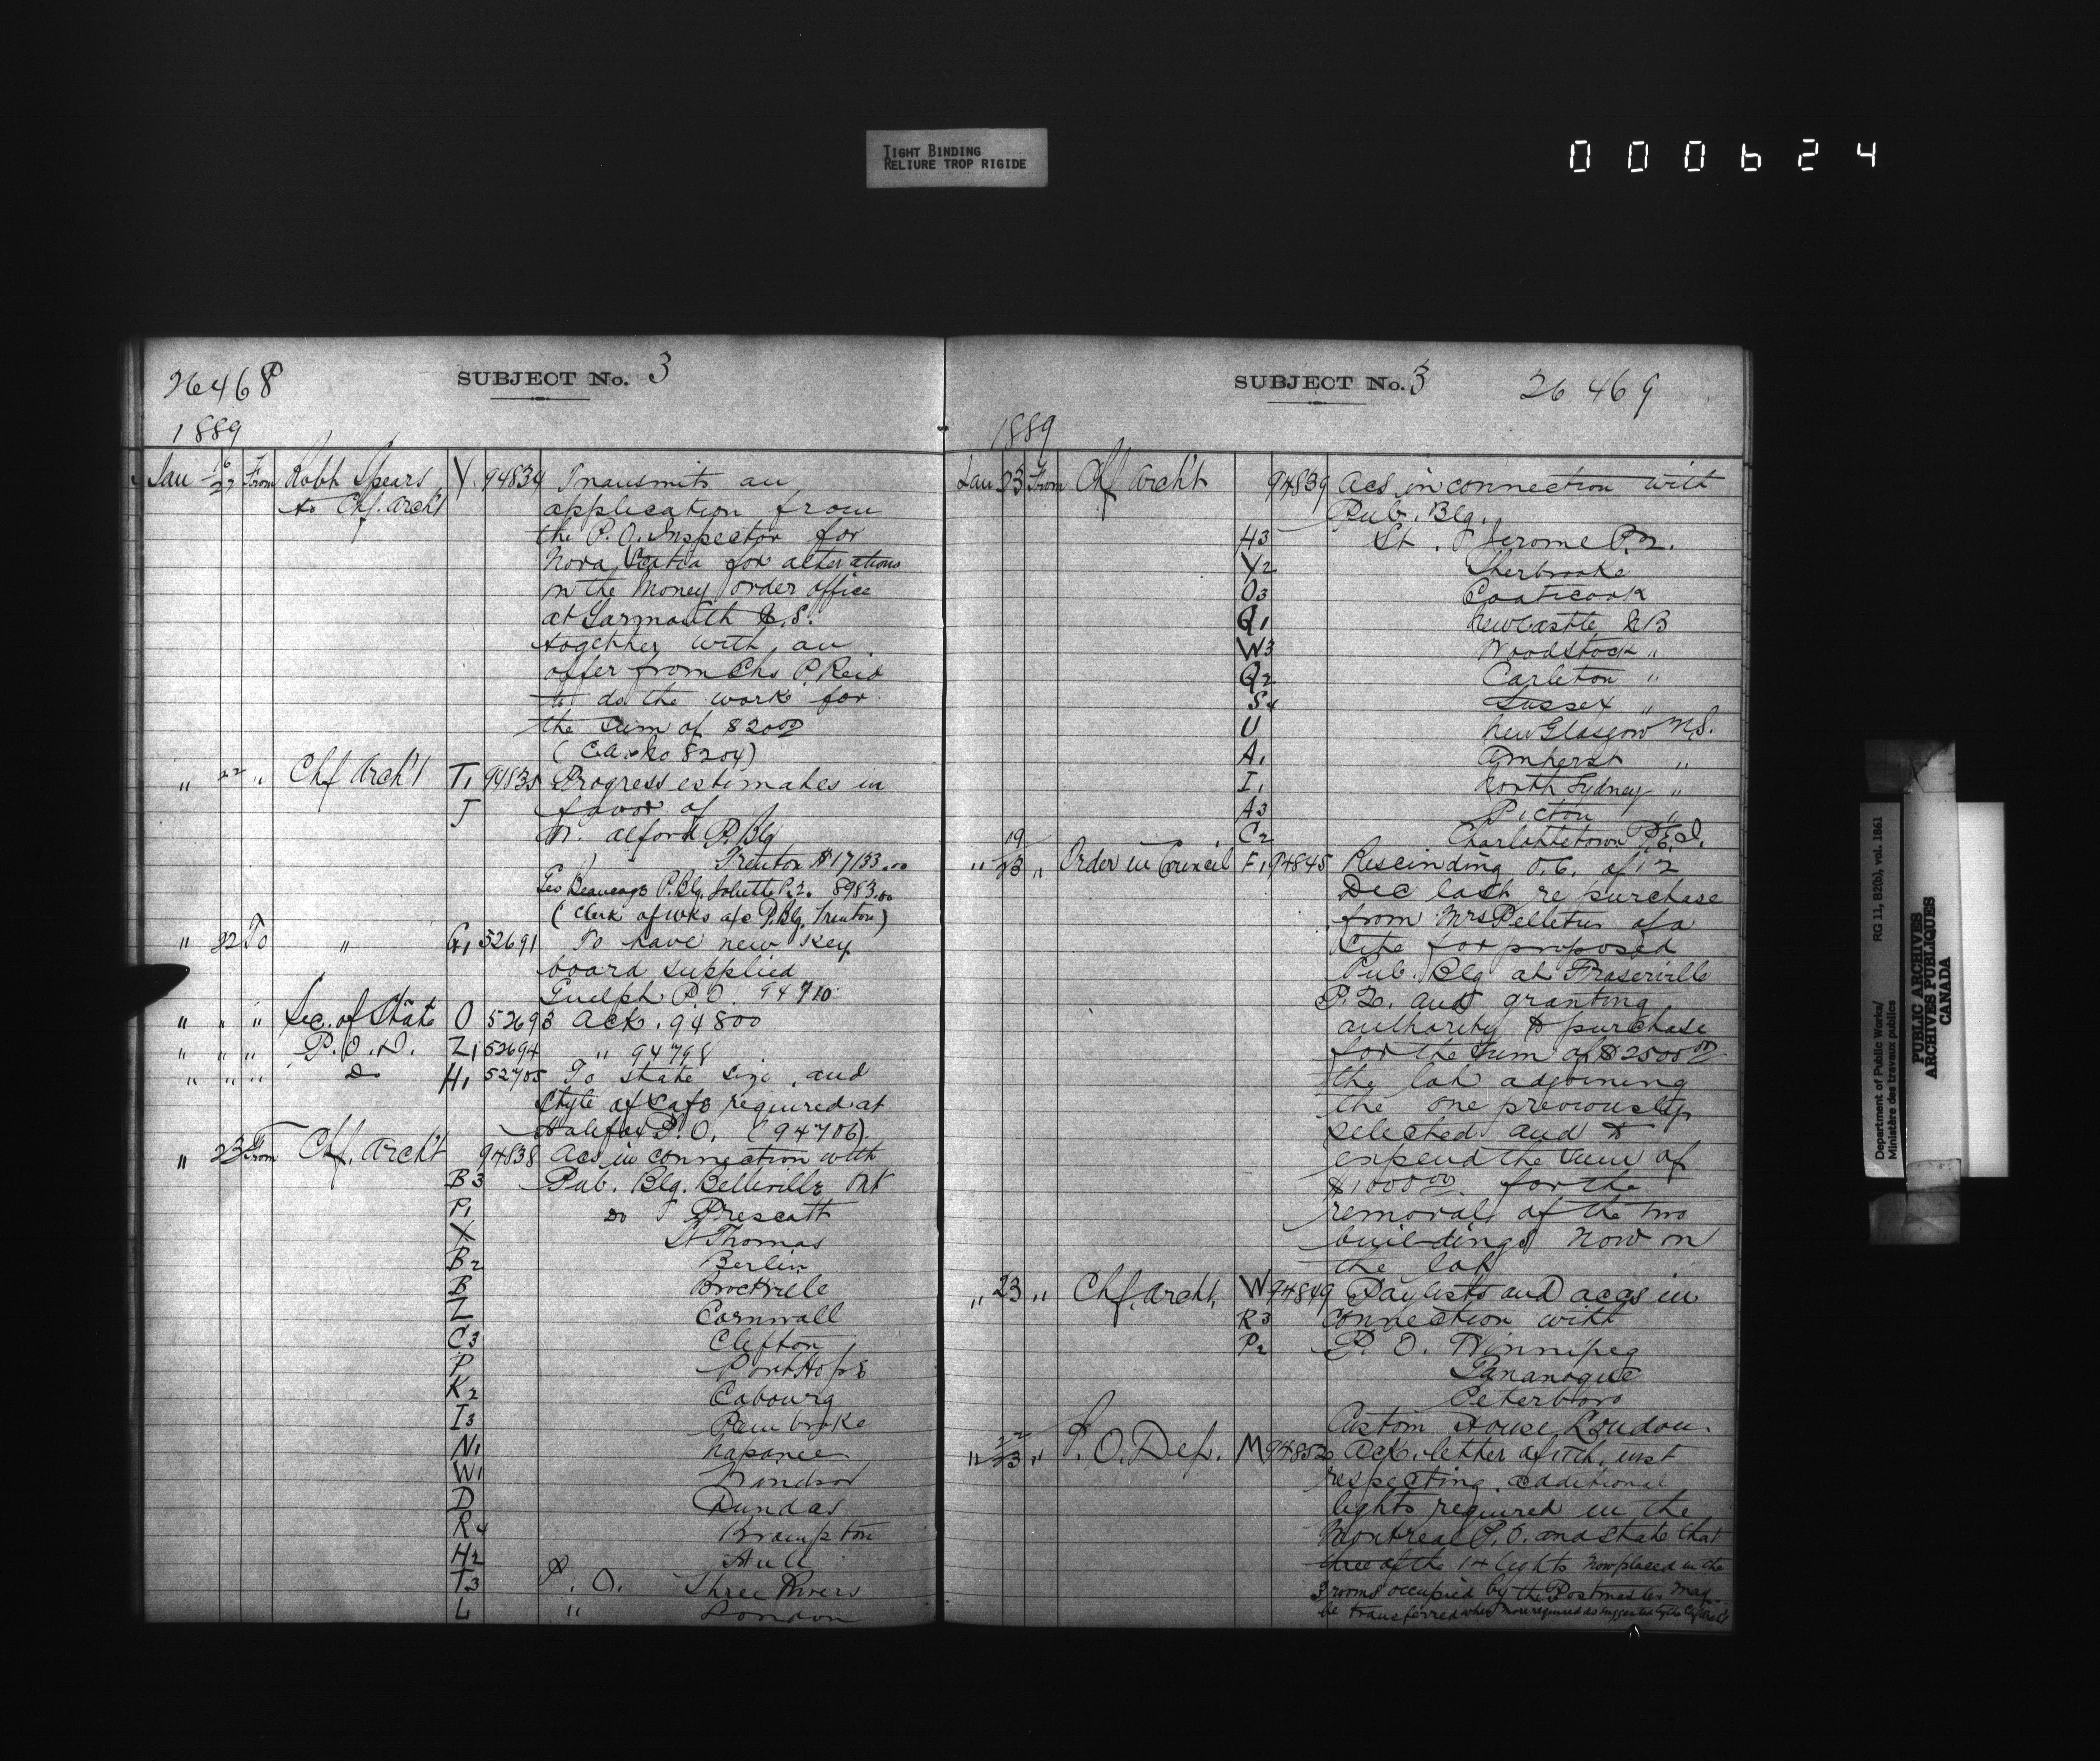 TIGHT BINDING
RELIURE TROP RIGIDE
000624
26468
SUBJECT No. 3
1889
Jan 16/22 From Robt Spears Y 94834 Transmits an
to Chf. Arch't application from
the P. O. Inspector for
Nova Scotia for alterations
in the Money order office
at Yarmouth N.S.
together with an
offer from Chs P. Reid
to do the work for
the sum of $20.00
(C.A. No 8204)
" 22 " Chf Arch't T1 94835 Progress estimates in
J favor of
W. Alford P. Blg
Trenton $17133.00
Geo Beaucage P. Blg. Joliette P.Q. 8983.00
(Clerk of wks a/c P. Blg. Trenton)
" 22 To " G1 52691 To have new key
board supplied
Guelph P.O. 94710
" " " Sec. of State O 52693 Ack. 94800
" " " P.O.D. Z1 52694 " 94798
" " " Do H1 52705 To state size, and
style of safe required at
Halifax P.O. (94706).
" 23 From Chf. Arch't 94838 Acs in connection with
B3 Pub. Blg. Belleville Ont
P1 Do Prescott
X St Thomas
B2 Berlin
B Brockville
Z Cornwall
C3 Clifton
P Port Hope
K2 Cobourg
I3 Pembroke
N1 Napanee
W1 Windsor
D Dundas
R4 Brampton
H2 Hull
T3 P. O. Three Rivers
L " London
SUBJECT No. 3
26469
1889
Jan 23 From Chf Arch't 94839 Acs in connection with
Pub. Blg.
H3 St. Jerome P.Q.
Y2 Sherbrooke
O3 Coaticook
Q1 Newcastle N B
W3 Woodstock "
Q2 Carleton "
S4 Sussex "
U New Glasgow N.S.
A1 Amherst "
I1 North Sydney "
A3 Pictou "
C2 Charlottetown P.E.I.
" 19/23 " Order in Council F1 94845 Rescinding O.C. of 12
Dec last re purchase
from Mrs Pelletier of a
site for proposed
Pub. Blg at Fraserville
P.Q. and granting
authority to purchase
for the sum of $2500.00
the lot adjoining
the one previously
selected and to
expend the sum of
$1000.00 for the
removal of the two
buildings now on
the lot
" 23 " Chf. Archt. W 94849 Paylists and accs in
R3 connection with
P2 P. O. Winnipeg
Gananoque
Peterboro
Custom House London.
" 22/23 " P. O. Dep. M 94852 Ack. letter of 17th. inst
respecting additional
lights required in the
Montreal P.O. and state that
three of the 14 lights now placed in the
3 rooms occupied by the Postmaster may
be transferred when more required as suggested by the Chf Arch't
Department of Public Works/
Ministère des travaux publics
RG 11, B2(b), vol. 1861
PUBLIC ARCHIVES
ARCHIVES PUBLIQUES
CANADA